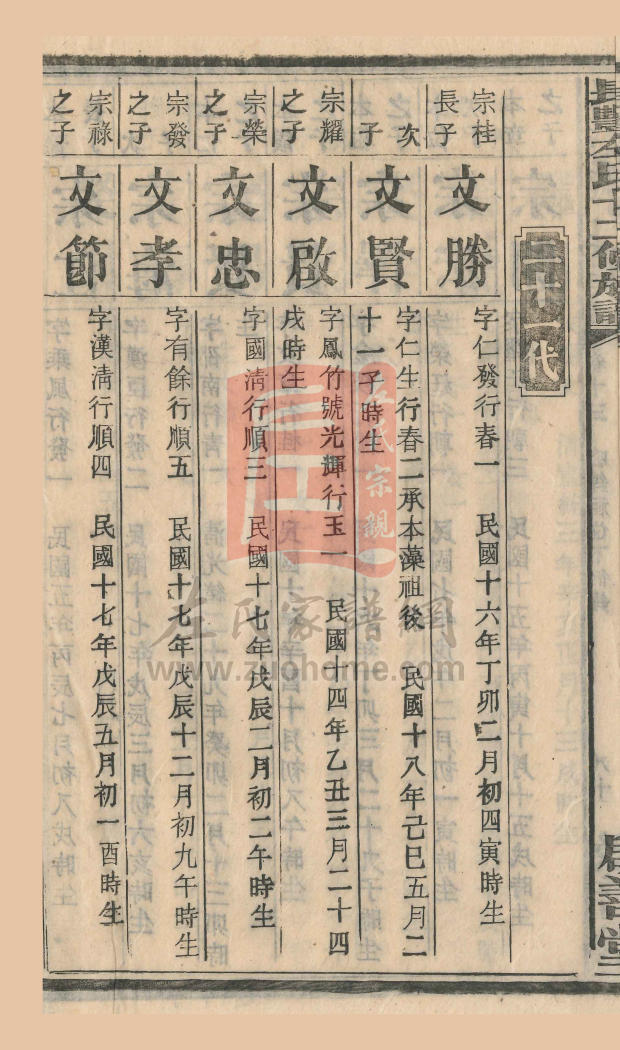 長豐左氏十二修族譜
二十一代
宗桂
長子
文勝
字仁發行春一 民國十六年丁卯二月初四寅時生
次
子
文賢
字仁生行春二承本藻祖後 民國十八年己巳五月二
十一子時生
宗耀
之子
文啟
字鳳竹號光輝行玉一 民國十四年乙丑三月二十四
戌時生
宗榮
之子
文忠
字國清行順三 民國十七年戊辰二月初二午時生
宗發
之子
文孝
字有餘行順五 民國十七年戊辰十二月初九午時生
宗祿
之子
文節
字漢清行順四 民國十七年戊辰五月初一酉時生
左氏宗親
左氏家譜網
www.zuohome.com